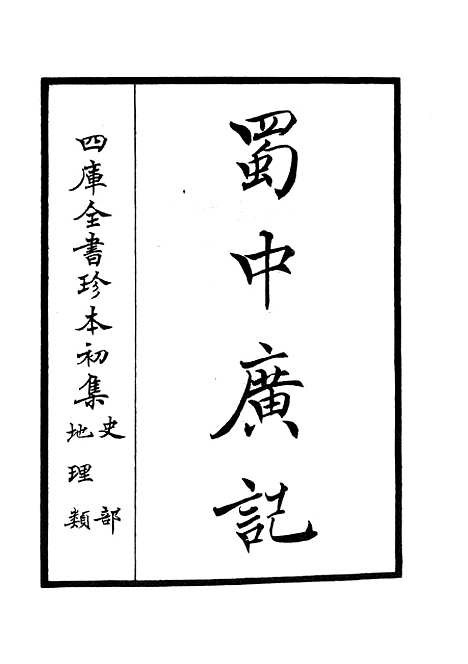 蜀中廣記
四庫全書珍本初集
史部
地理類